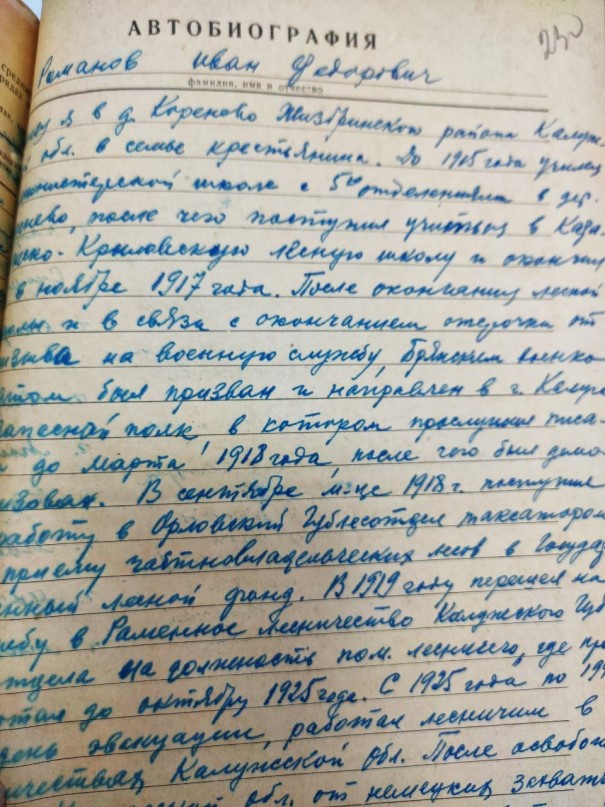 АВТОБИОГРАФИЯ
230
Романов Иван Федорович
фамилия, имя и отчество
я в д. Кореново Жиздринского района Калуж-
обл. в семье крестьянина. До 1915 года учился
министерской школе с 5ю отделениями в дер.
после чего поступил учиться в
Крыловскую лесную школу и окончил
в ноябре 1917 года. После окончания лесной
и в связи с окончанием отсрочки от
на военную службу, Брянским военко-
был призван и направлен в г.
запасной полк, в котором прослужил писа-
до марта 1918 года, после чего был демо-
В сентябре м-це 1918 г. поступил
работу в Орловский Гублесотдел таксатором
приему частновладельческих лесов в Государ
лесной фонд. В 1919 году перешел на
в Раменное лесничество Калужского Губ
на должность пом. лесничего, где про
до октября 1925 года. С 1925 года по
день эвакуации, работал лесничим в
Калужской обл. После освобож
обл. от немецких захват